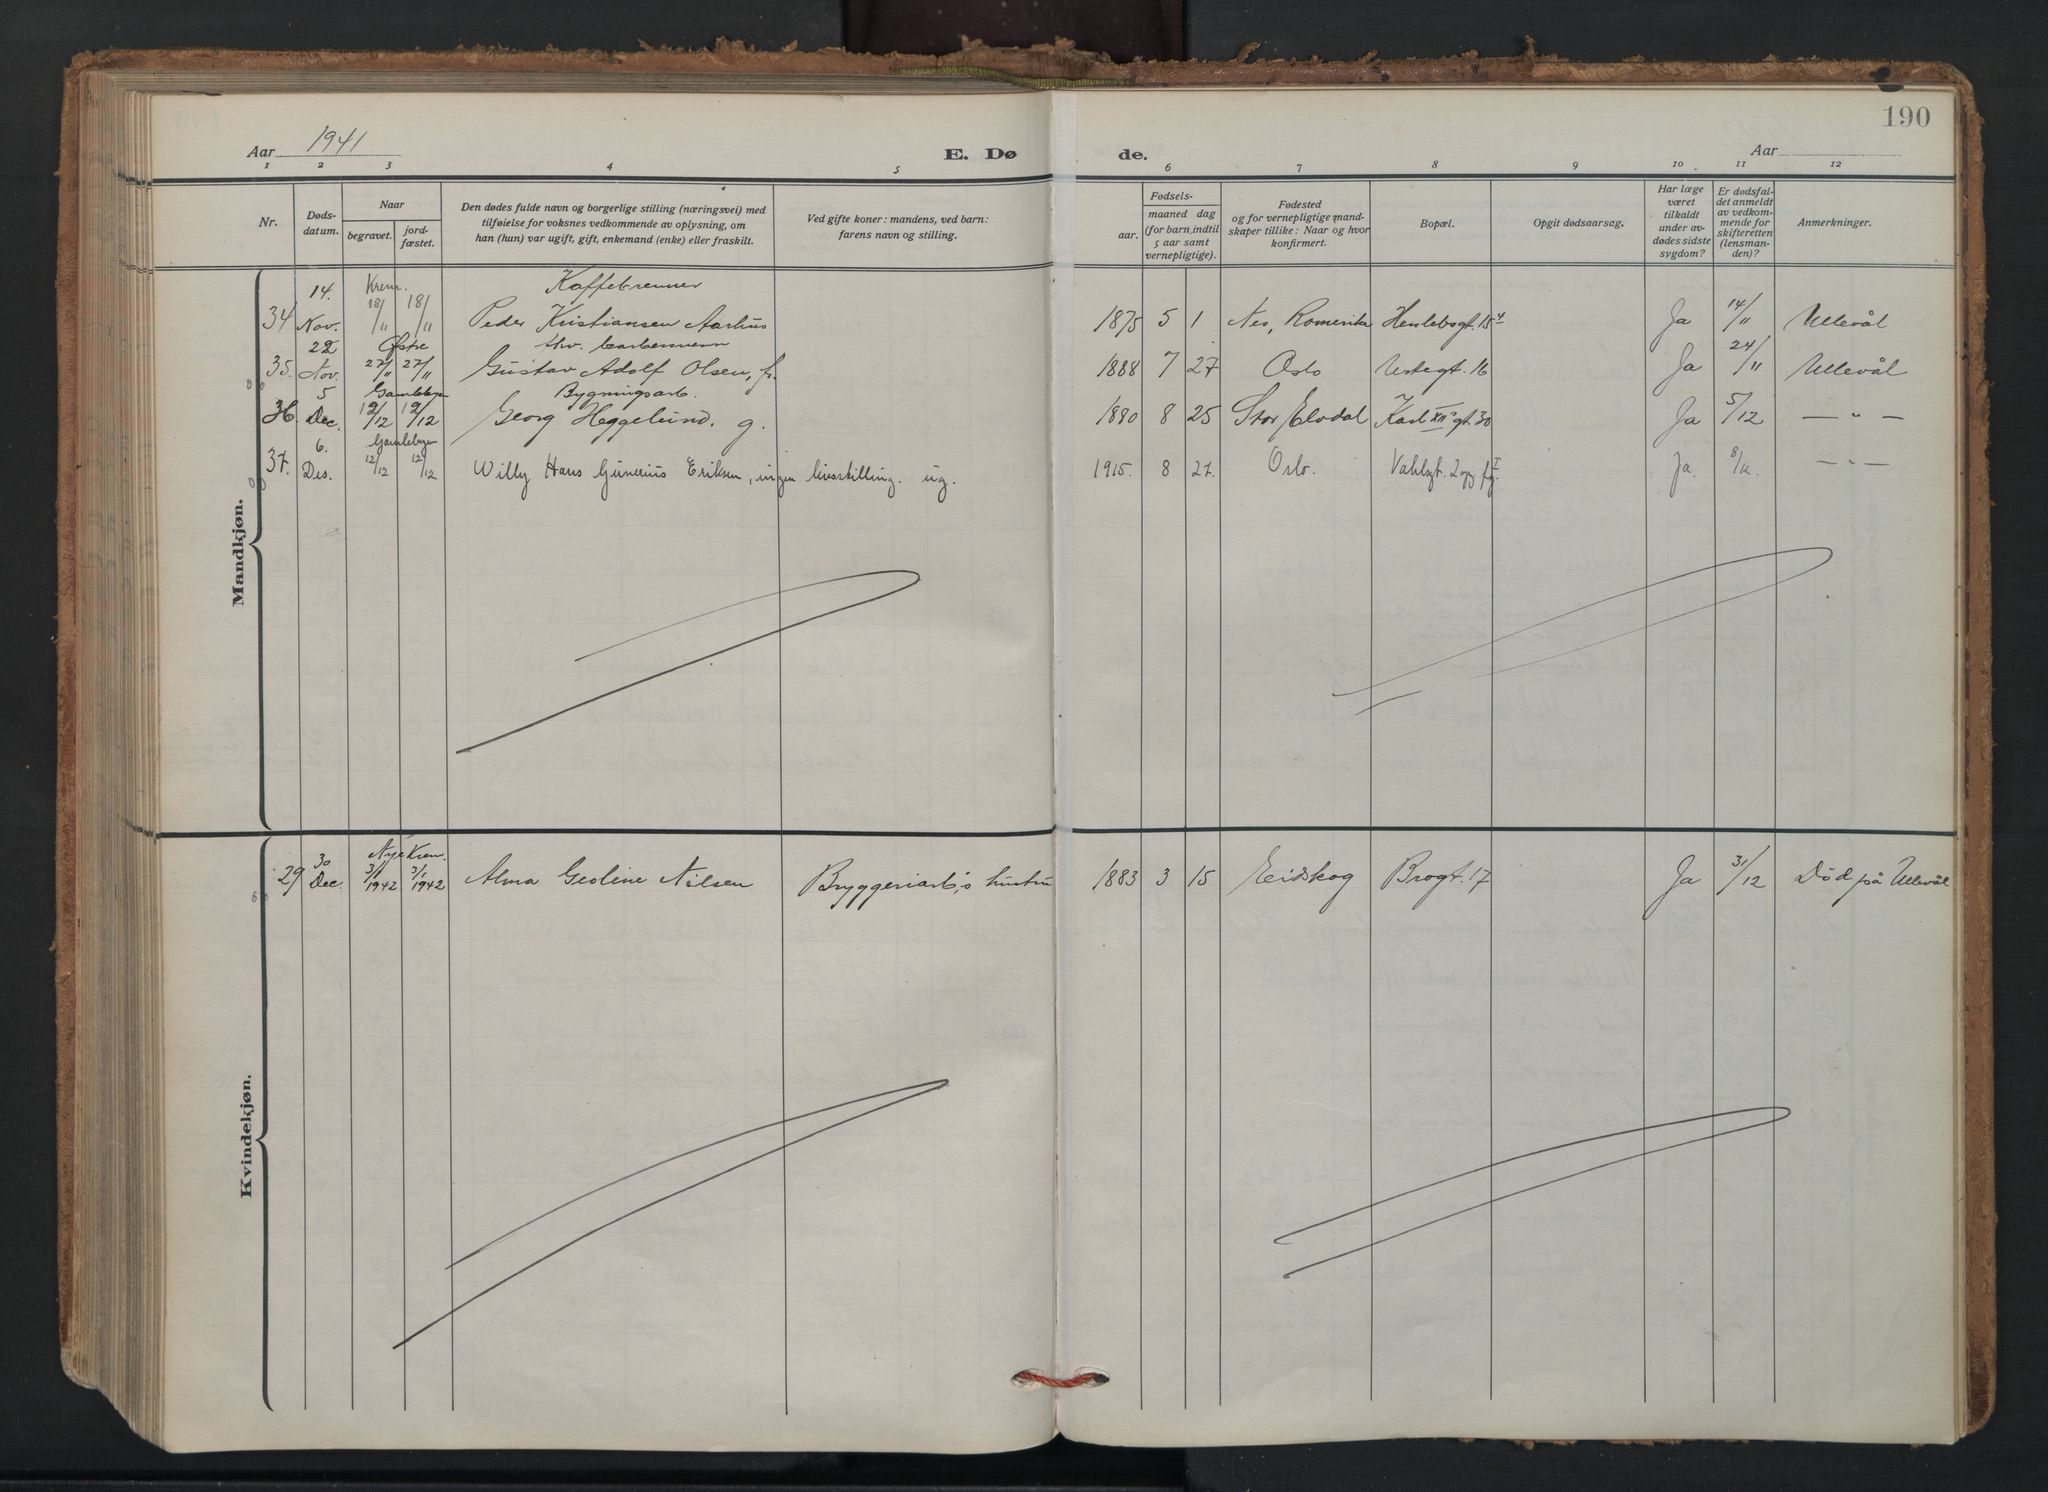 190
Aar 1941
E. Dø
de.
Aar
1 2 3 4 5 6 7 8 9 10 11 12
Nr.
Døds-
datum.
Naar
begravet.
jord-
fæstet.
Den dødes fulde navn og borgerlige stilling (næringsvei) med
tilføielse for voksnes vedkommende av oplysning, om
han (hun) var ugift, gift, enkemand (enke) eller fraskilt.
Ved gifte koner: mandens, ved barn:
farens navn og stilling.
Fødsels-
aar.
maaned dag
(for barn indtil
5 aar samt
vernepligtige).
Fødested
og for vernepligtige mand-
skaper tillike: Naar og hvor
konfirmert.
Bopæl.
Opgit dødsaarsag.
Har læge
været
tilkaldt
under av-
dødes sidste
sygdom?
Er dødsfal-
det anmeldt
av vedkom-
mende for
skifteretten
(lensman-
den)?
Anmerkninger.
Mandkjøn.
14. Krem. Kaffebrenner
34 Nov. 18/11 18/11 Peder Kristiansen Aarhus 1875 5 1 Nes, Romerike Herslebsgt. 15 4 Ja 14/11 Ullevål
22 Østre
35. Nov. 27/11 27/11 Gustav Adolf Olsen, fr. 1888 7 27 Oslo Urtegt. 16 Ja 24/11 Ullevål
5 Gamlebyen Bygningsarb.
36. Dec. 12/12 12/12 Georg Heggelund. g. 1880 8 25 Stor Elvdal Karl XII's gt. 30 Ja 5/12 — " —
6. Gamlebyen
37. Des. 12/12 12/12 Willy Hans Gunerius Eriksen, ingen livsstilling. ug. 1915. 8 27. Oslo. Vahlsgt. 2 Ja. 8/12. — " —
Kvindekjøn.
30 Nye Krem.
29 Dec. 3/1 1942 3/1 1942 Alma Geoline Nilsen Bryggeriarb.s hustru 1883 3 15 Eidskog Brogt. 17 Ja 31/12 Död på Ullevål